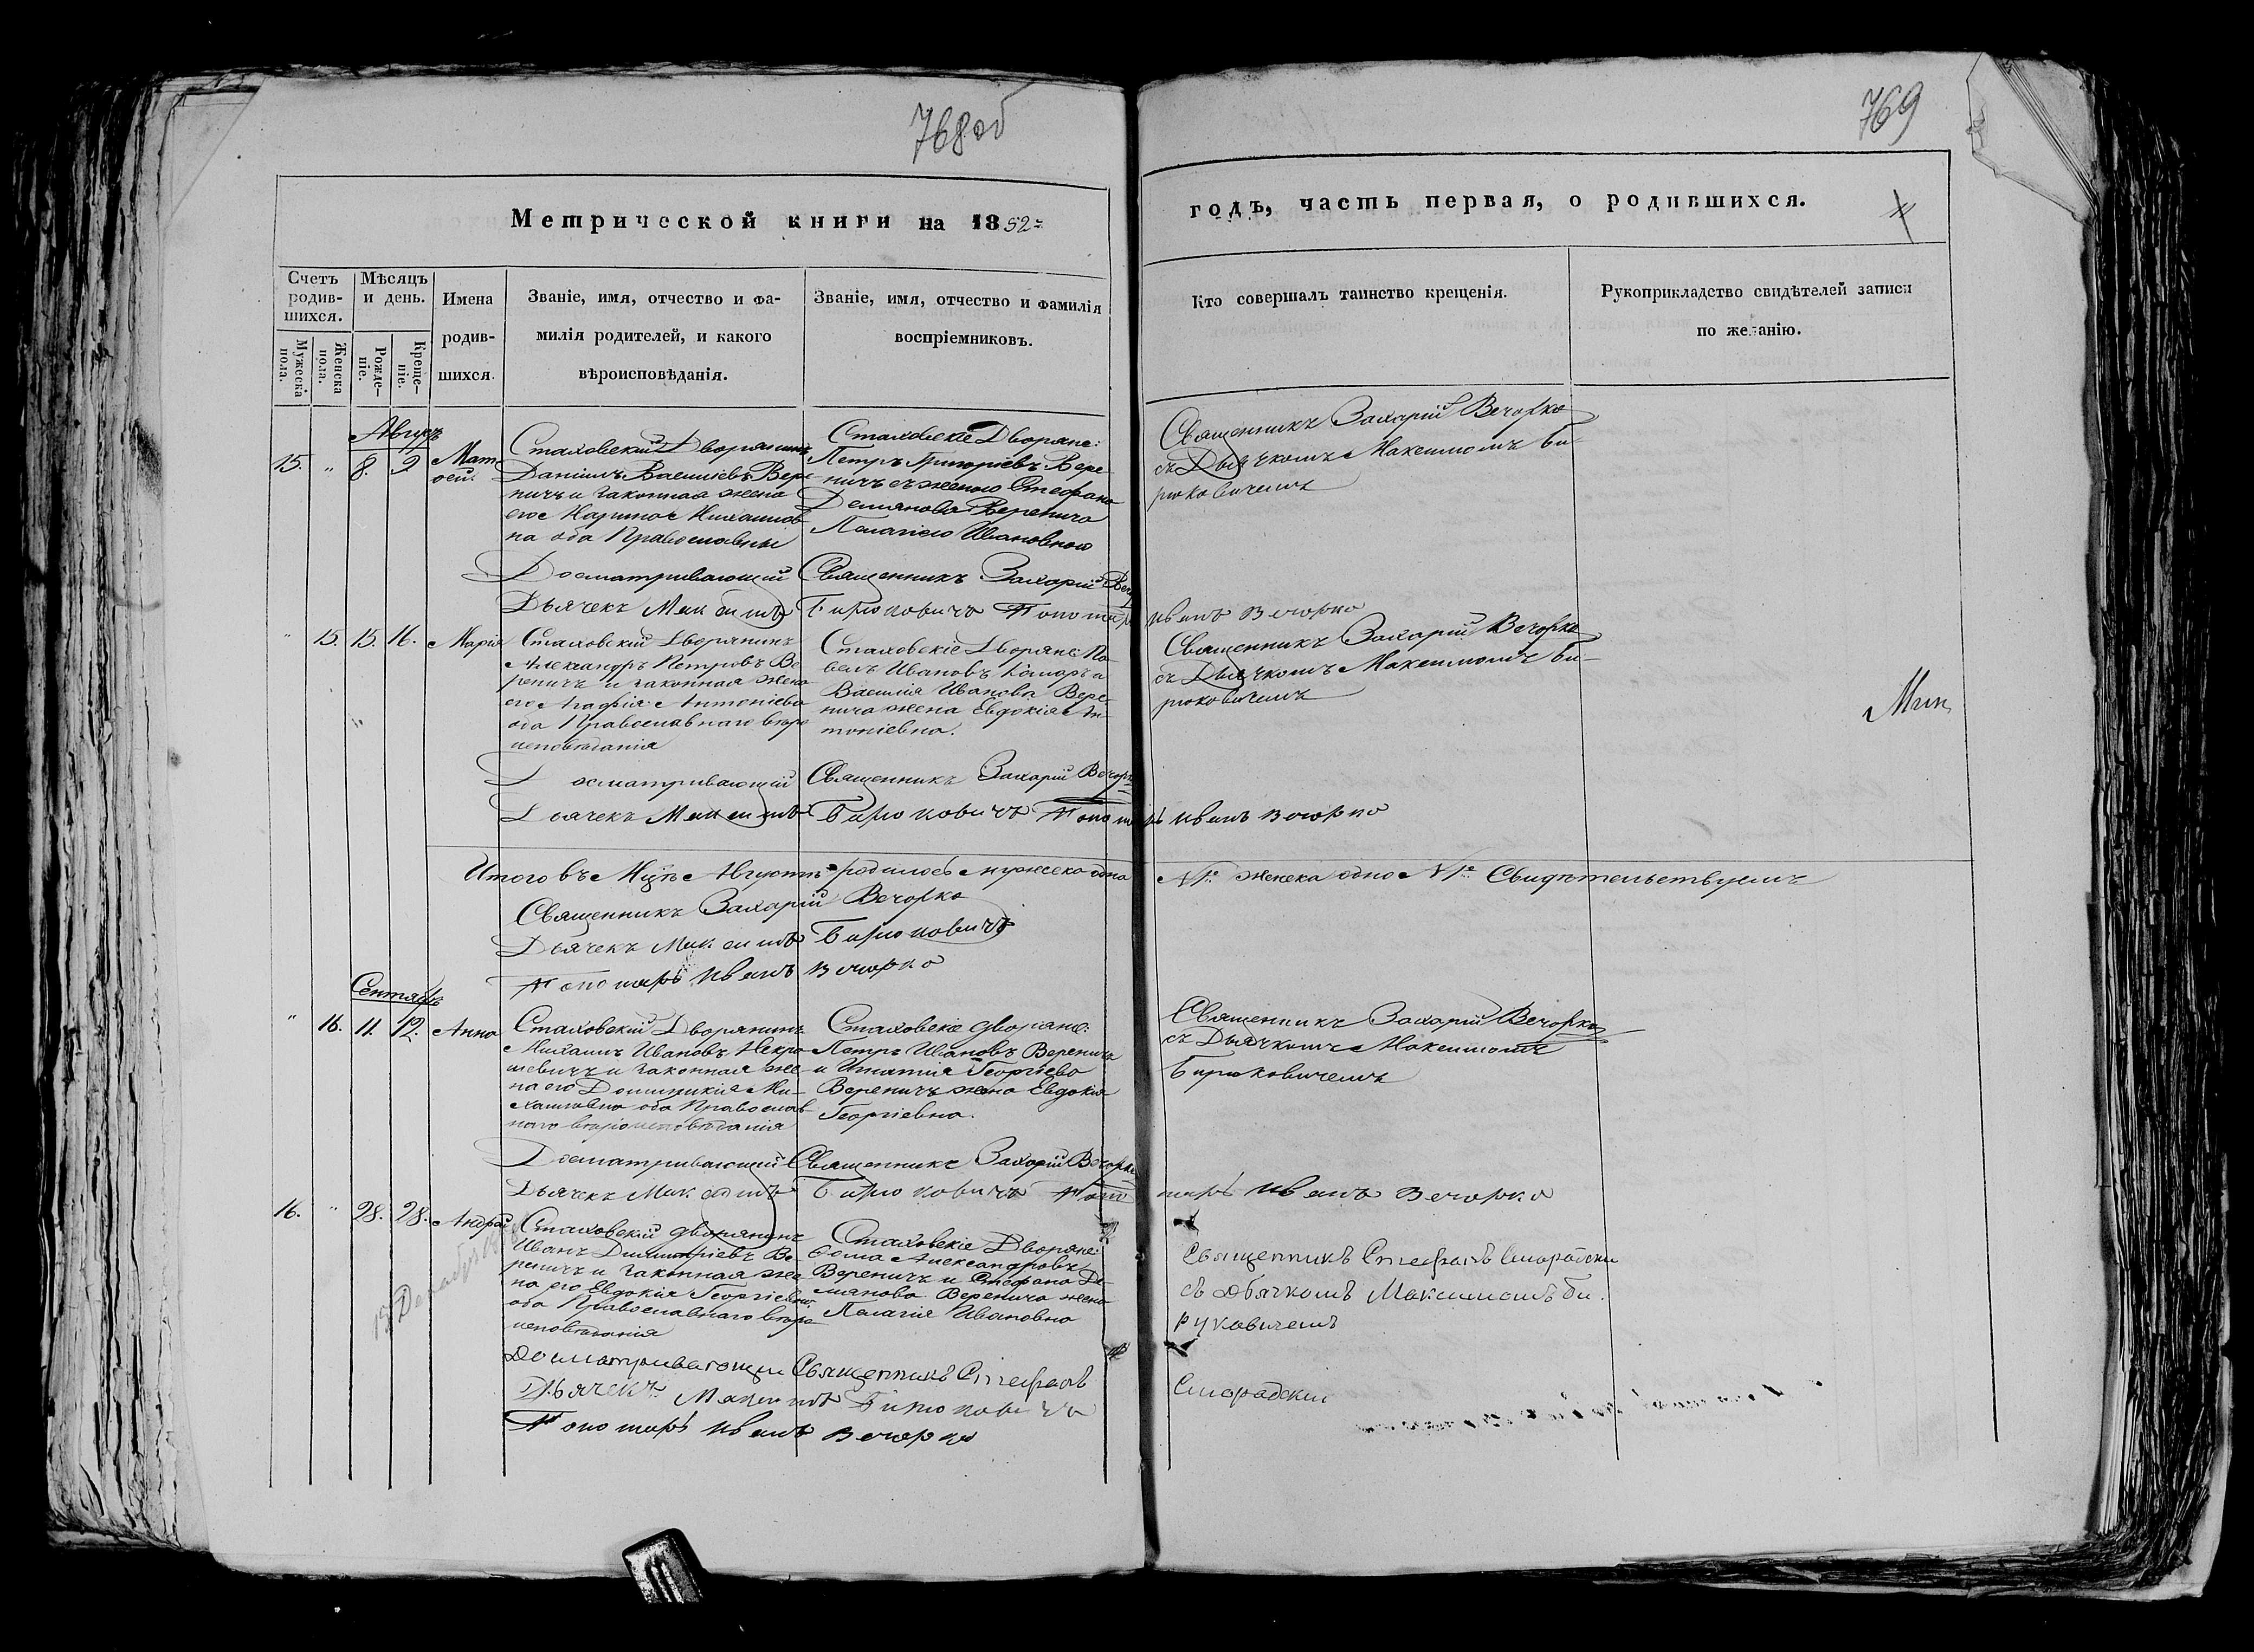 768 об
769
Метрической книги на 1852 =
годъ, часть первая, о родившихся.
Счетъ родив-шихся.
Мужеска пола.
Женска пола.
Мѣсяцъ и день.
Рожде-ніе.
Креще-ніе.
Имена
родив-
шихся.
Званіе, имя, отчество и фа-
милія родителей, и какого
вѣроисповѣданія.
Званіе, имя, отчество и фамилія
воспріемниковъ.
Кто совершалъ таинство крещенія.
Рукоприкладство свидѣтелей записи
по желанію.
15. " 8. 9
Мат
ѳей.
Стаховскій Дворянинъ
Даніилъ Василіевъ Вере
ничъ и законная жена
его Марина Михаилов
на оба Православны
Стаховскіе Дворяне:
Петръ Григоріевъ Вере
ничъ съ женою Стефана
Демянова Веренича
Палагіею Ивановною
Священникъ Захарій Вечорко
съ Дьячкомъ Максимомъ Би-
рюковичемъ
Досматривающій Священникъ Захарій
Дьячекъ Максимъ Бирюковичъ Пономарь Иванъ Вечорко
" 15. 15. 16. Марія
Стаховскій Дворянинъ
Александръ Петровъ Ве
реничъ и законная жена
его Агафія Антоніева
оба Православнаго вѣро
исповѣданія
Стаховскіе Дворяне: Па
велъ Ивановъ Комаръ и
Василія Иванова Вере-
нича жена Евдокія Ан-
тоніевна.
Священникъ Захарій Вечорко
съ Дьячкомъ Максимомъ Би-
рюковичемъ
Досматривающій Священникъ Захарій Вечорко
Дьячекъ Максимъ Бирюковичъ Пономарь Иванъ Вечорко
Итого въ Мцѣ Августѣ родилось мужеска одна № женска одно № Свидѣтельствуемъ
Священникъ Захарій Вечорко
Дьячекъ Максимъ Бирюковичъ
Пономарь Иванъ Вечорко
" 16. 11. 12. Анна
Стаховскій Дворянинъ
Михаилъ Ивановъ Некра
шевичъ и законная же
на его Доминикія Ми-
хаиловна оба Православ
наго вѣроисповѣданія
Стаховскіе дворяне:
Петръ Ивановъ Вереничъ
и Игнатія Георгіева
Вереничъ жена Евдокія
Георгіевна.
Священникъ Захарій Вечорко
съ Дьячкомъ Максимомъ
Бирюковичемъ
Досматривающій Священникъ Захарій Вечорко
Дьячекъ Максимъ Бирюковичъ Пономарь Иванъ Вечорко
16. " 28. 28. Андрей
Стаховскій дворянинъ
Иванъ Димитріевъ Ве-
реничъ и законная же
на его Евдокія Георгіевна
оба Православнаго вѣро
исповѣданія
Стаховскіе Дворяне:
Ѳома Александровъ
Вереничъ и Стефана Де-
мянова Веренича жена
Палагія Ивановна
Священникъ Стефанъ Сморадски
съ Дьячкомъ Максимомъ Би.
руковичемъ
Досматривающи Священникъ Стефанъ Сморадски
Дьячекъ Максимъ Бирюковичъ
Пономарь Иванъ Вечорко